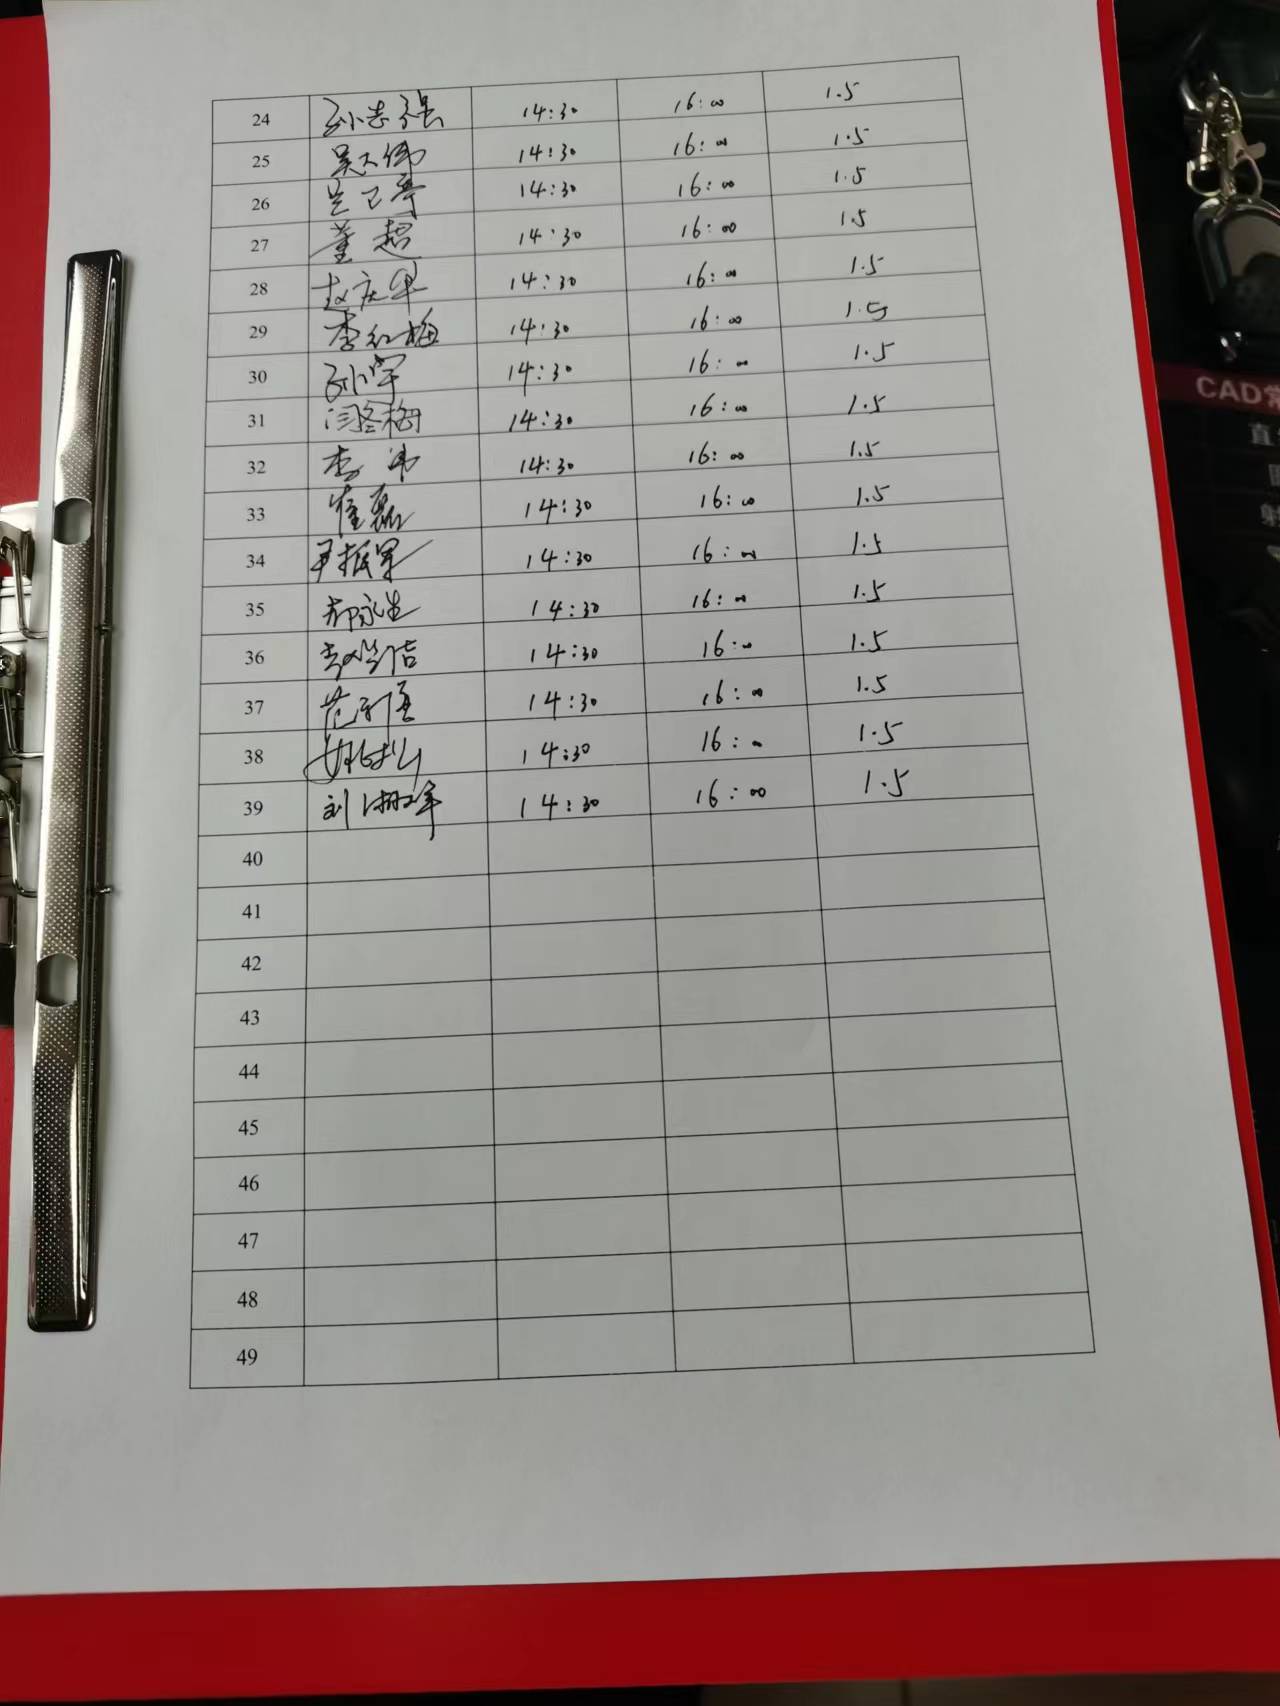 24 孙志强 14:30 16:00 1.5
25 吴大伟 14:30 16:00 1.5
26 14:30 16:00 1.5
27 董超 14:30 16:00 1.5
28 赵庆华 14:30 16:00 1.5
29 李红梅 14:30 16:00 1.5
30 孙宇 14:30 16:00 1.5
31 闫冬梅 14:30 16:00 1.5
32 李伟 14:30 16:00 1.5
33 崔磊 14:30 16:00 1.5
34 14:30 16:00 1.5
35 郝永生 14:30 16:00 1.5
36 14:30 16:00 1.5
37 14:30 16:00 1.5
38 14:30 16:00 1.5
39 刘淑军 14:30 16:00 1.5
40
41
42
43
44
45
46
47
48
49
CAD常
直